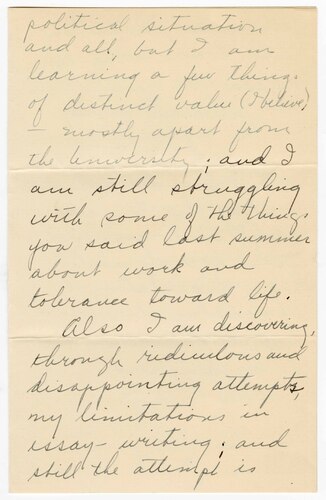 political situation
and all, but I am
learning a few things
of distinct value (I believe)
- mostly apart from
the University; and I
am still struggling
with some of the things
you said last summer
about work and
tolerance toward life.
Also I am discovering,
through ridiculous and
disappointing attempts,
my limitations in
essay-writing; and
still the attempt is